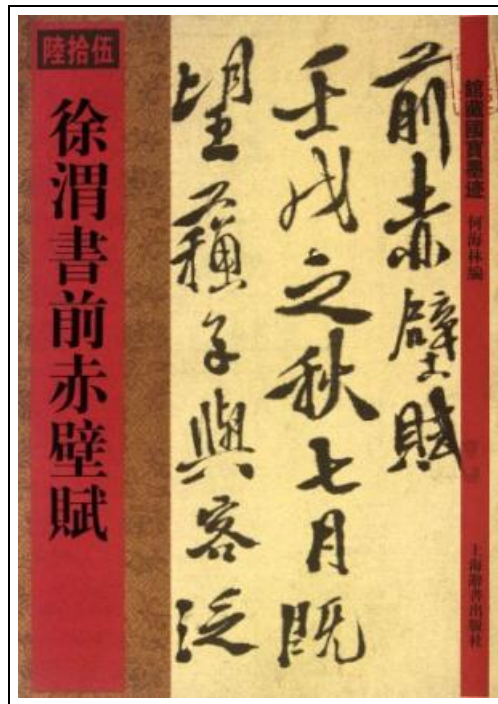 陸拾伍
徐渭書前赤壁賦
前赤壁賦
壬戌之秋七月既
望蘓子與客泛
館藏國寶墨迹
何海林編
上海辭書出版社